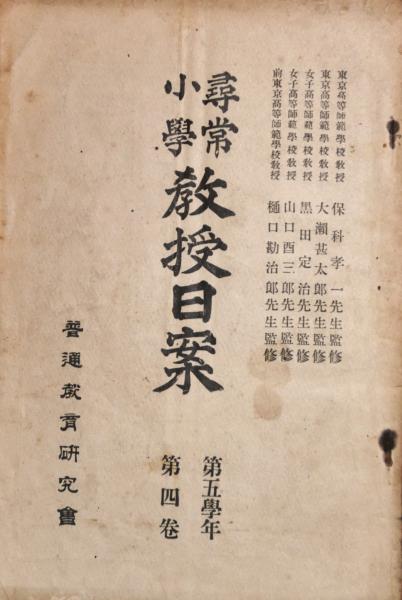 東京高等師範學校教授 保科孝一先生監修
東京高等師範學校教授 大瀬甚太郎先生監修
女子高等師範學校教授 黒田定治先生監修
女子高等師範學校教授 山口酉三郎先生監修
前東京高等師範學校教授 樋口勘治郎先生監修
尋常
小學
教授日案
第五學年
第四卷
普通教育研究會